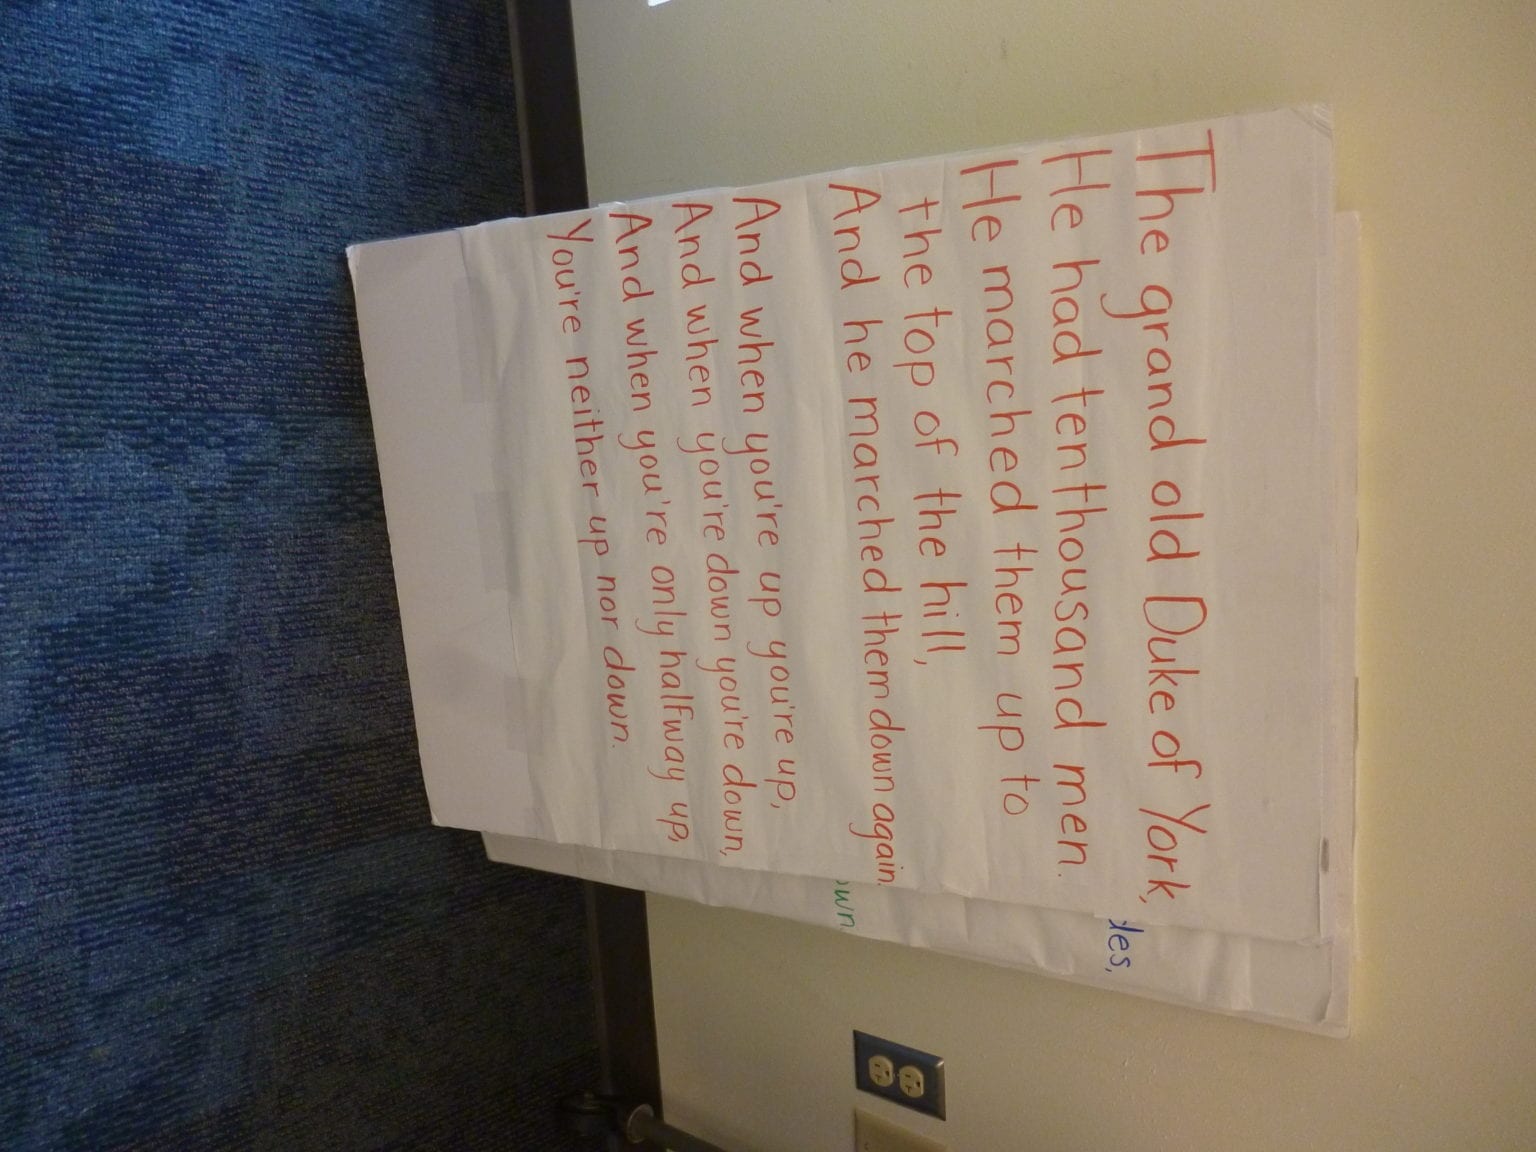 The grand old Duke of York,
He had ten thousand men.
He marched them up to
the top of the hill,
And he marched them down again.
And when you're up you're up,
And when you're down you're down,
And when you're only halfway up,
You're neither up nor down.